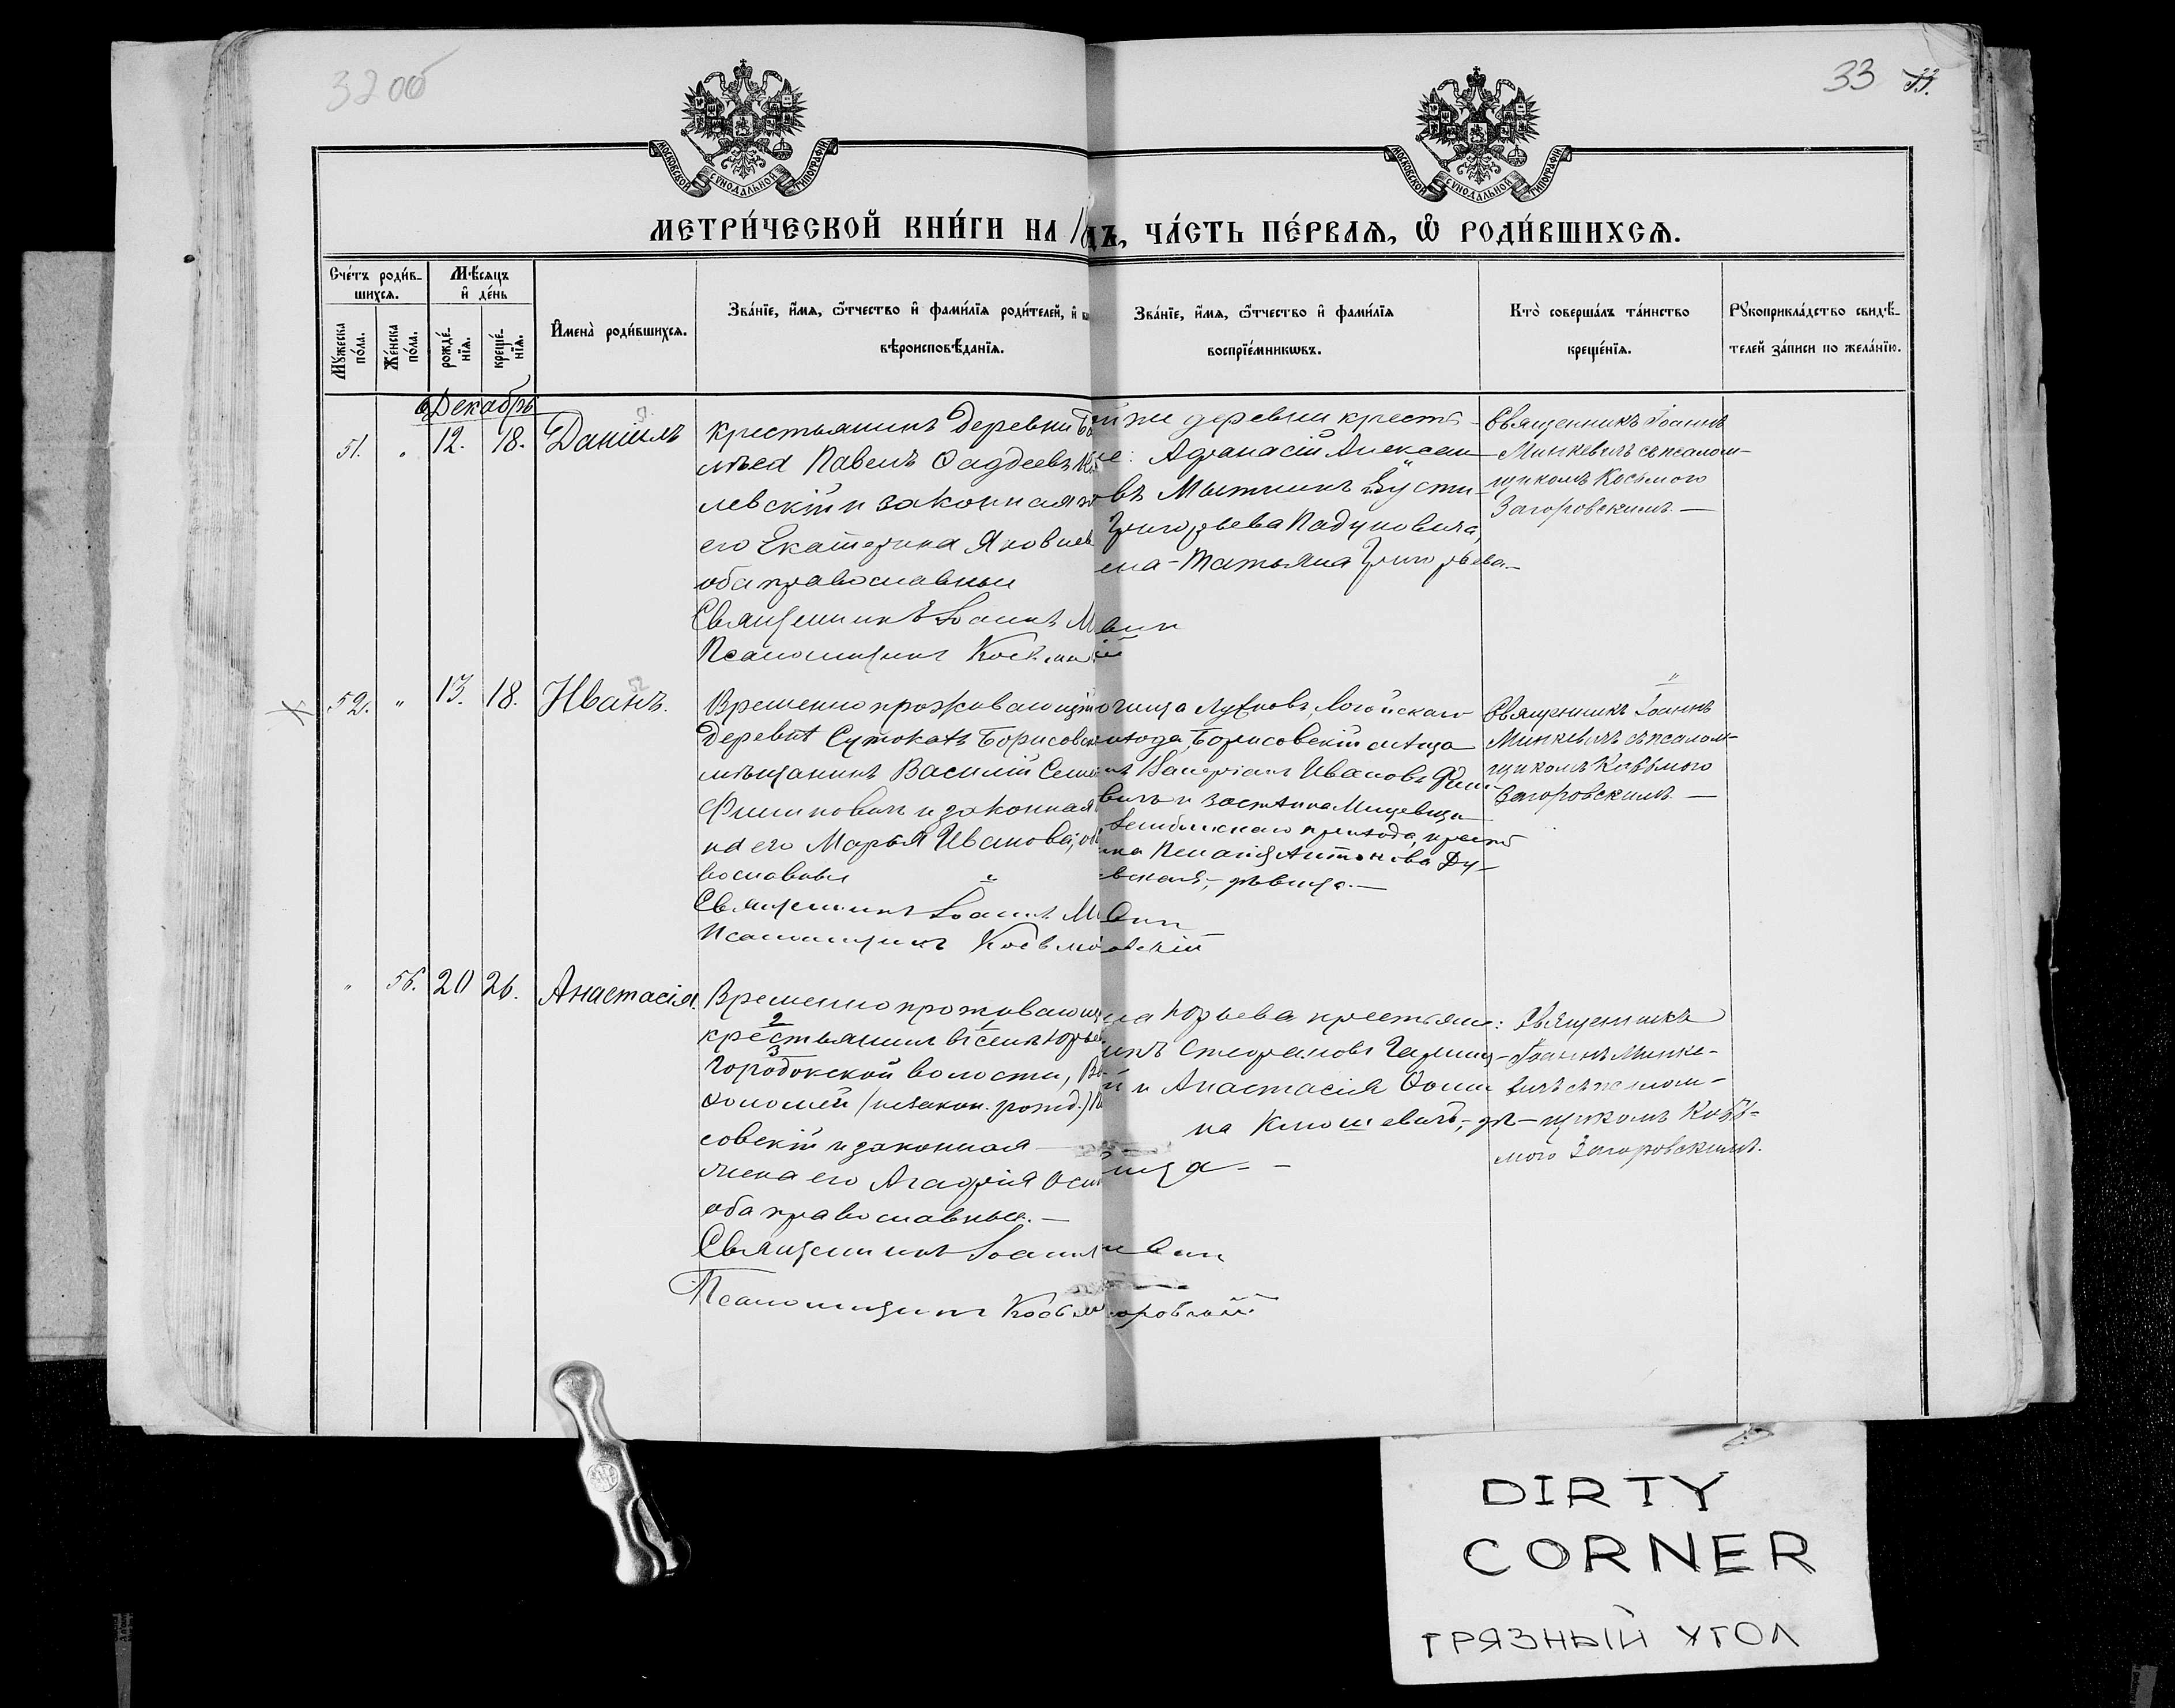 32 об
33
33.
МОСКОВСКОЙ СѴНОДАЛЬНОЙ ТИПОГРАФІИ
МОСКОВСКОЙ СѴНОДАЛЬНОЙ ТИПОГРАФІИ
МЕТРИ́ЧЕСКОЙ КНИ́ГИ НА 18
ДЪ, ЧА́СТЬ ПЕ́РВАѦ, Ѽ РОДИ́ВШИХСѦ.
Сче́тъ роди́в-
шихсѧ.
Мѣ́сѧцъ
и҆ де́нь
Мꙋ́жеска
по́ла.
Же́нска
по́ла.
рожде́-
нїѧ.
креще́-
нїѧ.
И҆мена̀ роди́вшихсѧ.
Зва́нїе, и҆́мѧ, ѻ҆́тчество и҆ фами́лїѧ роди́телей, и҆
вѣроисповѣ́данїѧ.
Зва́нїе, и҆́мѧ, ѻ҆́тчество и҆ фами́лїѧ
воспрїе́мникѡвъ.
Кто̀ соверша́лъ та́инство
креще́нїѧ.
Рꙋкоприкла́дство свидѣ́-
телей за́писи по жела́нїю.
Декабрь
51. " 12. 18. Даніилъ
Крестьянинъ деревни
Павелъ Ѳаддеевъ
левскій и законная
его Екатерина Яковлев
оба православные
Священникъ Іоаннъ М
Псаломщикъ Косьма
же деревни кресть-
Афанасій Алексан
въ Мытникъ Усти-
Григорьева Падуковича,
ена - Татьяна Григорьева.
вич
ій
Священникъ Іоаннъ
Минкевичъ съ псалом-
щикомъ Косьмою
Загоровскимъ.—
52. " 13. 18. Иванъ.
Временно проживающій
деревнѣ Сутокахъ Борисовск
мѣщанинъ Василій Семе
Филиповичъ и законная
на его Марья Иванова; об
вославные
Священникъ Іоаннъ М
Псаломщикъ Косьмо
Логойскаго
Борисовскій мѣща
Валеріанъ Ивановъ Фил
вичъ и застѣнка Мицевичи
прихода, крест
на Пелагія Антонова Ду-
вская,- дѣвица.—
вич
овскій
Священникъ Іоаннъ
Минкевичъ съ псалом-
щикомъ Косьмою
Загоровскимъ.—
" 56. 20 26. Анастасія.
Временно проживающ
крестьянинъ въ селѣ Юрьев
Городокской волости, Ва
ѳоломей (незакон. рожд.)
совскій и законная
жена его Агафія Оси
оба православные.—
Священникъ Іоаннъ
Псаломщикъ Косьм
ла Юрьева крестьян:
Стефановъ
й и Анастасія Ѳоми
на Климшевичъ,- дѣ-
вица - -
вич
оровскій
Священникъ
Іоаннъ Минке-
вичъ съ псалом-
щикомъ Кось-
мою Загоровскимъ.
DIRTY
CORNER
ГРЯЗНЫЙ УГОЛ